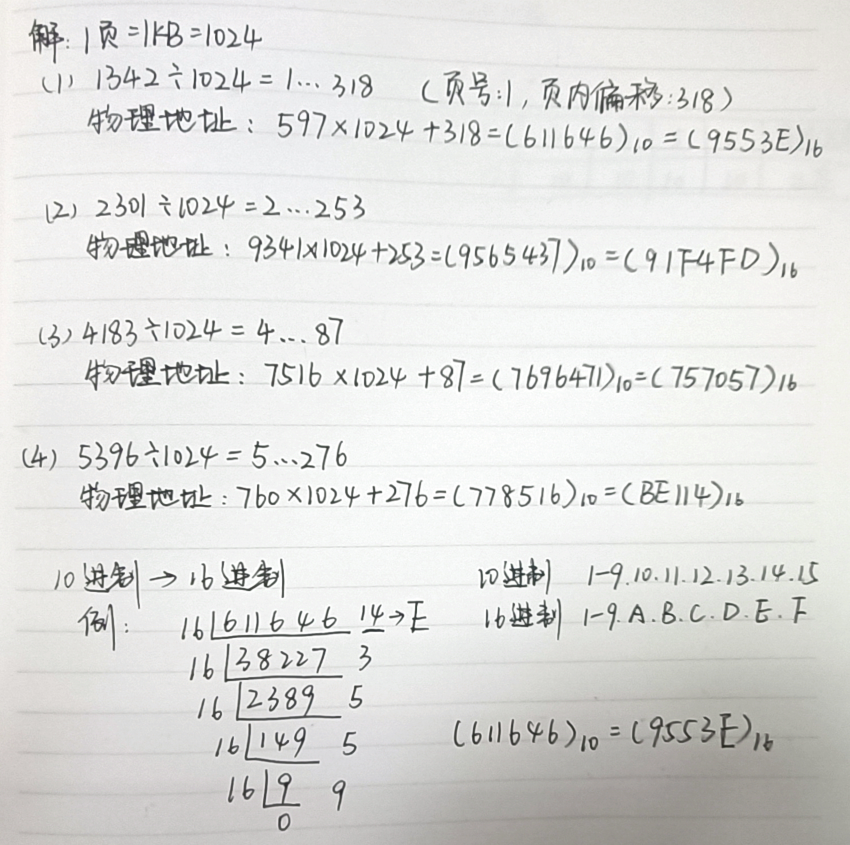 解: 1页=1KB=1024
(1) 1342÷1024=1…318 (页号:1, 页内偏移:318)
物理地址: 597×1024+318=(611646)₁₀=(9553E)₁₆
(2) 2301÷1024=2…253
物理地址: 9341×1024+253=(9565437)₁₀=(91F4FD)₁₆
(3) 4183÷1024=4…87
物理地址: 7516×1024+87=(7696471)₁₀=(757057)₁₆
(4) 5396÷1024=5…276
物理地址: 760×1024+276=(778516)₁₀=(BE114)₁₆
10进制→16进制
10进制 1-9.10.11.12.13.14.15
例: 16 611646 14→E
16进制 1-9.A.B.C.D.E.F
16 38227 3
16 2389 5
16 149 5
(611646)₁₀=(9553E)₁₆
16 9 9
0